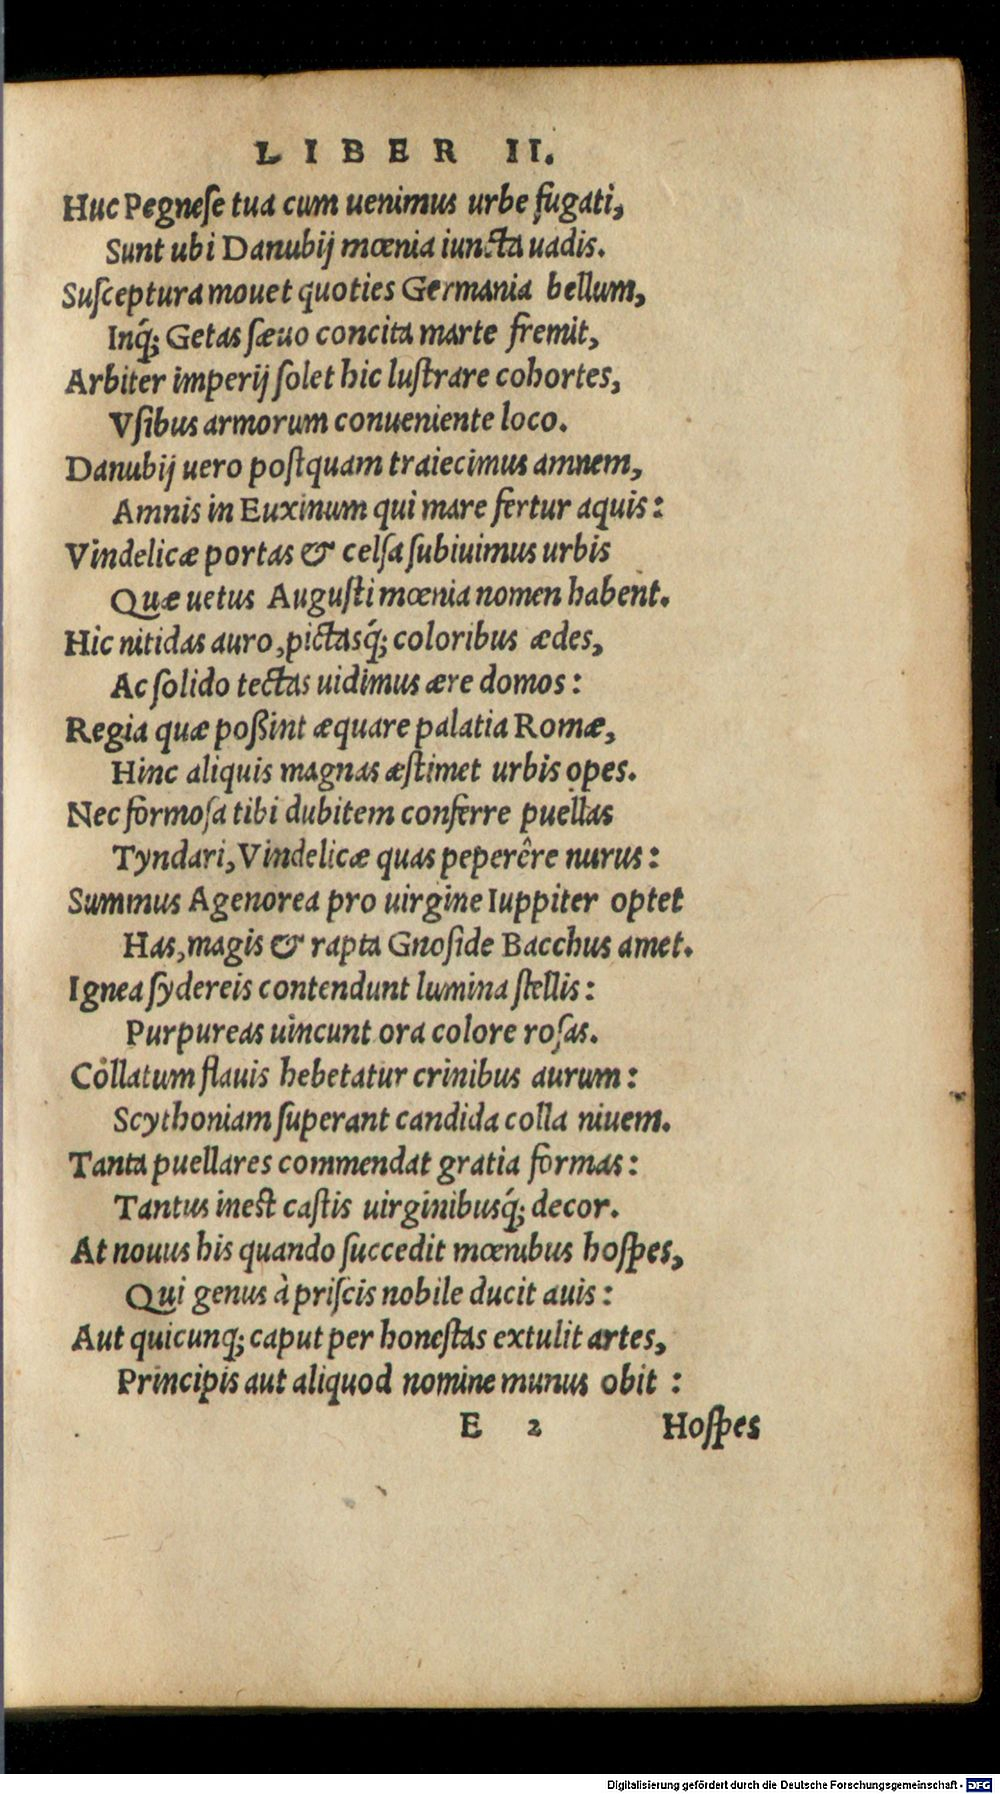 LIBER II.
Huc Pegneſe tua cum uenimus urbe fugati,
Sunt ubi Danubij mœnia iuncta uadis.
Suſceptura mouet quoties Germania bellum,
Inq́; Getas ſæuo concita marte fremit,
Arbiter imperij ſolet hic luſtrare cohortes,
Vſibus armorum conueniente loco.
Danubij uero poſtquam traiecimus amnem,
Amnis in Euxinum qui mare fertur aquis:
Vindelicæ portas & celſa ſubiuimus urbis
Quæ uetus Auguſti mœnia nomen habent.
Hic nitidas auro, pictasq́; coloribus ædes,
Ac ſolido tectas uidimus ære domos:
Regia quæ poßint æquare palatia Romæ,
Hinc aliquis magnas æſtimet urbis opes.
Nec formoſa tibi dubitem conferre puellas
Tyndari, Vindelicæ quas peperêre nurus:
Summus Agenorea pro uirgine Iuppiter optet
Has, magis & rapta Gnoſide Bacchus amet.
Ignea ſydereis contendunt lumina ſtellis:
Purpureas uincunt ora colore roſas.
Collatum flauis hebetatur crinibus aurum:
Scythoniam ſuperant candida colla niuem.
Tanta puellares commendat gratia formas:
Tantus ineſt caſtis uirginibusq́; decor.
At nouus his quando ſuccedit mœnibus hoſpes,
Qui genus à priſcis nobile ducit auis:
Aut quicunq; caput per honeſtas extulit artes,
Principis aut aliquod nomine munus obit :
E 2 Hoſpes
Digitalisierung gefördert durch die Deutsche Forschungsgemeinschaft - DFG